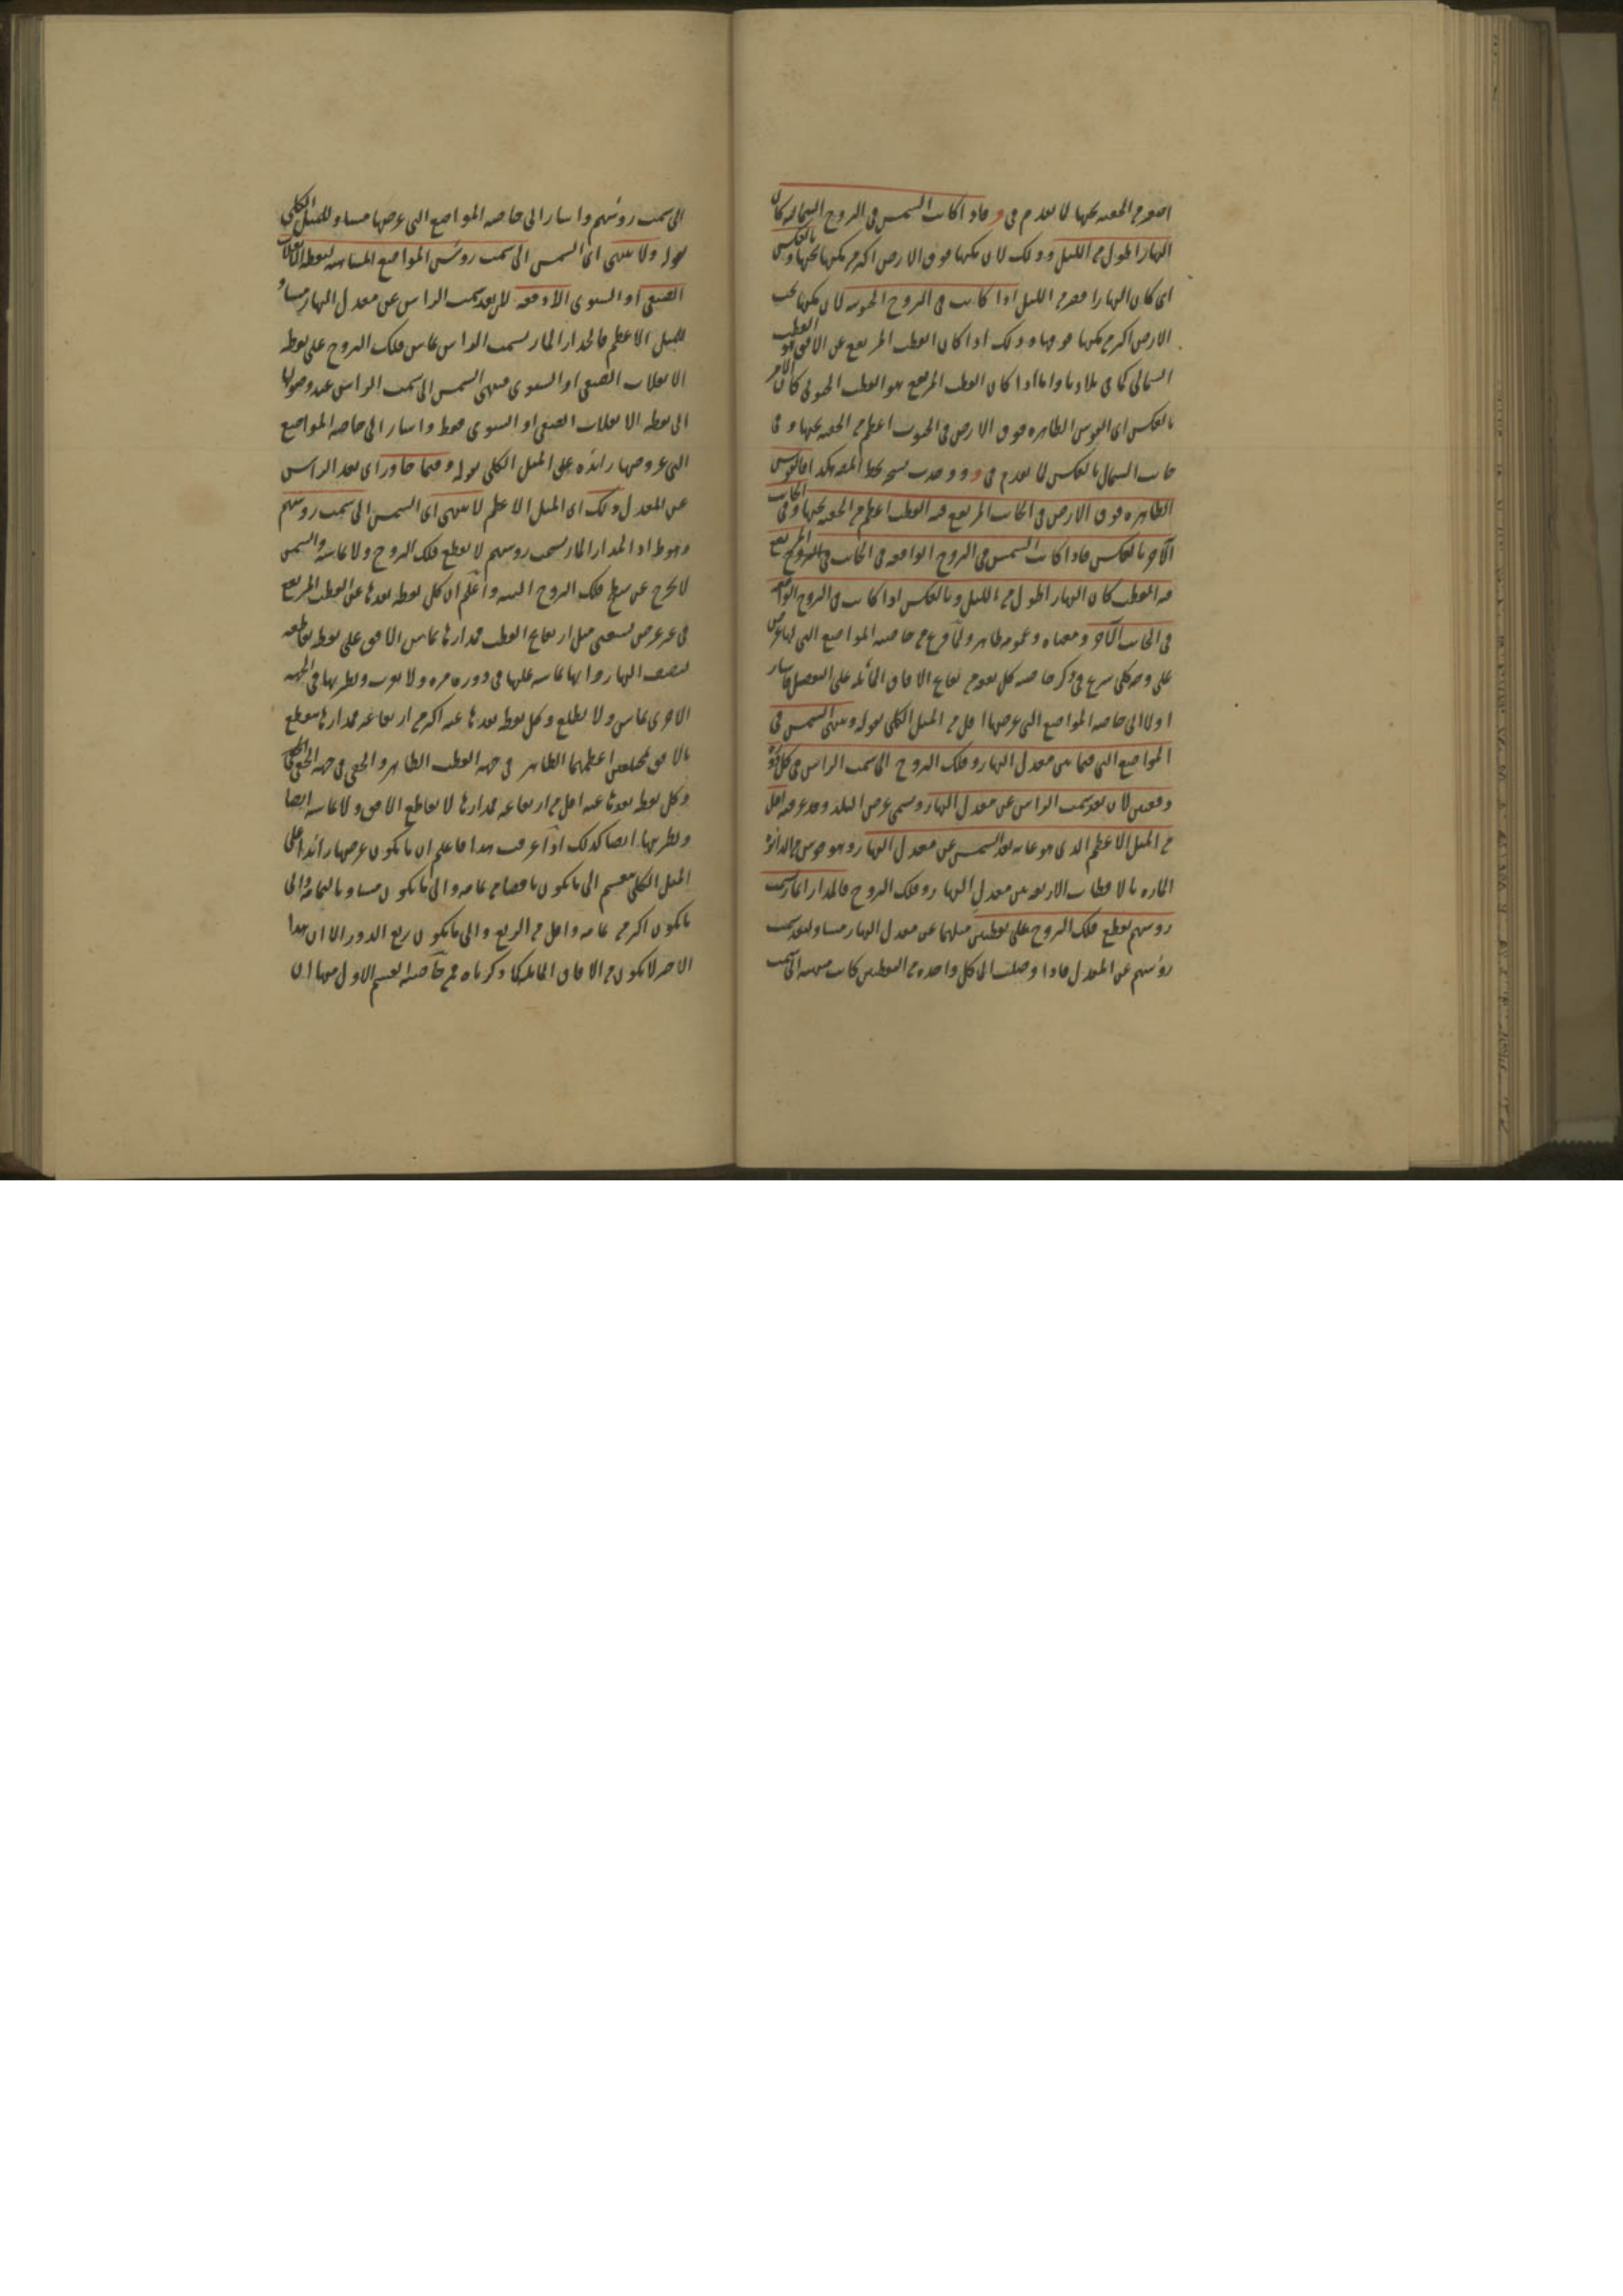 اصغر من الخفية تحتها لما تقدم في و فاذا كانت الشمس في البروج الشمالية كان
النهار اطول من الليل و وذلك لان مكثها فوق الارض اكثر من مكثها تحتها وبالعكس
اي كان النهار اقصر من الليل اذا كانت في البروج الجنوبية لان مكثها تحت
الارض اكثر من مكثها فوقها ه وذلك اذا كان القطب المرتفع عن الافق هو القطب
الشمالي كما في بلادنا واما اذا كان القطب المرتفع هو القطب الجنوبي كان الامر
بالعكس اي القوس الظاهرة فوق الارض في الجنوب اعظم من الخفية تحتها وفي
جانب الشمال بالعكس لما تقدم في و ووجدت نسخة بخط المصنف هكذا فالقوس
الظاهرة فوق الارض في الجانب المرتفع فيه القطب اعظم من الخفية تحتها وفي الجانب
الآخر بالعكس فاذا كانت الشمس في البروج الواقعة في الجانب المرتفع
فيه القطب كان النهار اطول من الليل وبالعكس اذا كانت في البروج الواقعة
في الجانب الآخر ومعناه وعمومه ظاهر ولما فرغ من خاصية المواضع التي لها عرض
على وجه كلي شرع في ذكر خاصية كل نوع من انواع الافاق المائلة على التفصيل فاشار
اولا الى خاصية المواضع التي عرضها اقل من الميل الكلي بقوله وتنتهي الشمس في
المواضع التي فيما بين معدل النهار وفلك البروج الى سمت الراس في كل دورة
دفعتين لان بعد سمت الراس عن معدل النهار وسمي عرض البلد وقد عرفته اقل
من الميل الاعظم الذي هو غاية بعد الشمس عن معدل النهار وهو قوس من الدائرة
المارة بالاقطاب الاربعة بين معدل النهار وفلك البروج فالمدار المار بسمت
رؤسهم يقطع فلك البروج على نقطتين ميلهما عن معدل النهار مساو لبعد سمت
رؤسهم عن المعدل فاذا وصلت الى كل واحدة من النقطتين كانت منتهية الى سمت
الى سمت رؤسهم واشار الى خاصية المواضع التي عرضها مساو للميل الكلي
بقوله ولا تنتهي اي الشمس الى سمت رؤس المواضع المسامتة لنقطة الانقلاب
الصيفي او الشتوي الا دفعة لان بعد سمت الراس عن معدل النهار مساو
للميل الاعظم فالمدار المار بسمت الراس يماس فلك البروج على نقطة
الانقلاب الصيفي او الشتوي فتنتهي الشمس الى سمت الراس عند وصولها
الى نقطة الانقلاب الصيفي او الشتوي فقط واشار الى خاصية المواضع
التي عروضها زائدة على الميل الكلي بقوله وفيما جاوز اي بعد الراس
عن المعدل ذلك اي الميل الاعظم لا تنتهي اي الشمس الى سمت رؤسهم
وهو ظ اذ المدار المار بسمت رؤسهم لا يقطع فلك البروج ولا يماسه والشمس
لا تخرج عن سطح فلك البروج البتة واعلم ان كل نقطة بعدها عن القطب المرتفع
في غير عرض تسعين مثل ارتفاع القطب فمدارها يماس الافق على نقطة تقاطعه
لنصف النهار وانها تماسه عليها في دورة مرة ولا تغرب ونظيرتها في الجهة
الاخرى تماس ولا تطلع وكل نقطة بعدها عنه اكثر من ارتفاعه فمدارها ينقطع
بالافق بمختلفين اعظمهما الظاهر في جهة القطب الظاهر والخفي في جهة الخفي
وكل نقطة بعدها عنه اقل من ارتفاعه فمدارها لا يقاطع الافق ولا يماسه ايضا
ونظيرتها ايضا كذلك اذا عرفت هذا فاعلم ان ما يكون عرضها زائدا على
الميل الكلي ينقسم الى ما يكون ناقصا من تمامه والى ما يكون مساويا لتمامه والى
ما يكون اكثر من تمامه واقل من الربع والى ما يكون ربع الدور الا ان هذا
الاخير لا يكون من الافاق المائلة كما ذكرناه فمن خاصية القسم الاول منها ان